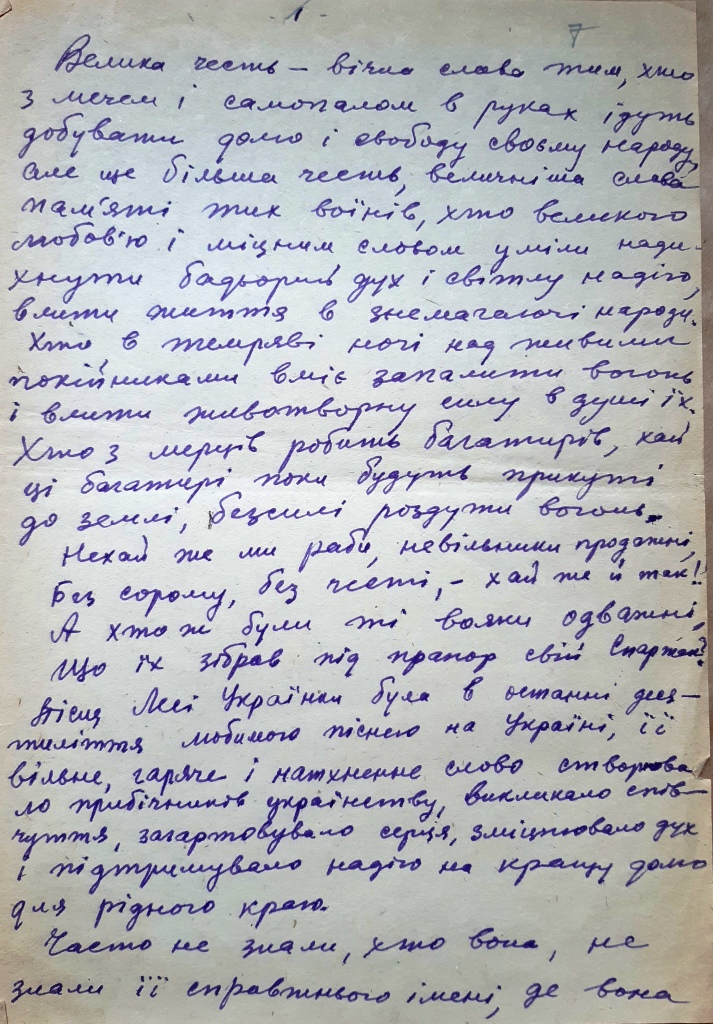 1
7
Велика честь – вічна слава тим, хто
з мечем і самопалом в руках ідуть
добувати долю і свободу своєму народу,
але ще більша честь, величніша слава
пам'яті тих воїнів, хто великого
любов'ю і міцним словом уміли нади-
хнути бадьорий дух і світлу надію,
влити життя в знемагаючі народи.
Хто, в темряві ночі над живими
покійниками вміє запалити вогонь
і влити животворну силу в душі їх.
Хто з мерців робить багатирів, хай
ці багатирі поки будуть прикуті
до землі, безсилі роздути вогонь.
Нехай же ми раби, невільники продажні,
Без сорому, без честі, – хай же й так!!
А хто ж були ті вояки одважні,
Що їх зібрав під прапор свій Спартак?
Пісня Лесі Українки була в останні деся-
тиліття любимою піснею на Україні, її
вільне, гаряче і натхненне слово створюва
ло прибічників українству, викликало спів-
чуття, загартовувало серця, зміцнювало дух
і підтримувало надію на кращу долю
для рідного краю.
Часто не знали, хто вона, не
знали її справжнього імені, де вона